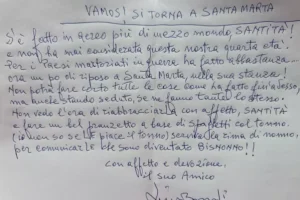 VAMOS! SI TORNA A SANTA MARTA
S'è fatto in aereo più di mezzo mondo, SANTITÀ!
e non ha mai considerato questa nostra quarta età.
Per i Paesi martoriati in guerra ha fatto abbastanza...
ora un po' di riposo a Santa Marta, nella sua stanza!
Non potrà fare certo tutte le cose come ha fatto fin adesso,
ma anche stando seduto, se ne fanno tante lo stesso.
Non vedo l'ora di riabbracciarla con affetto, SANTITÀ
e fare un bel pranzetto a base di spaghetti col tonno.
(io non so se le piace il tonno) la rima di nonno,
per comunicarle che sono diventato BISNONNO!!
con affetto e devozione,
il suo Amico